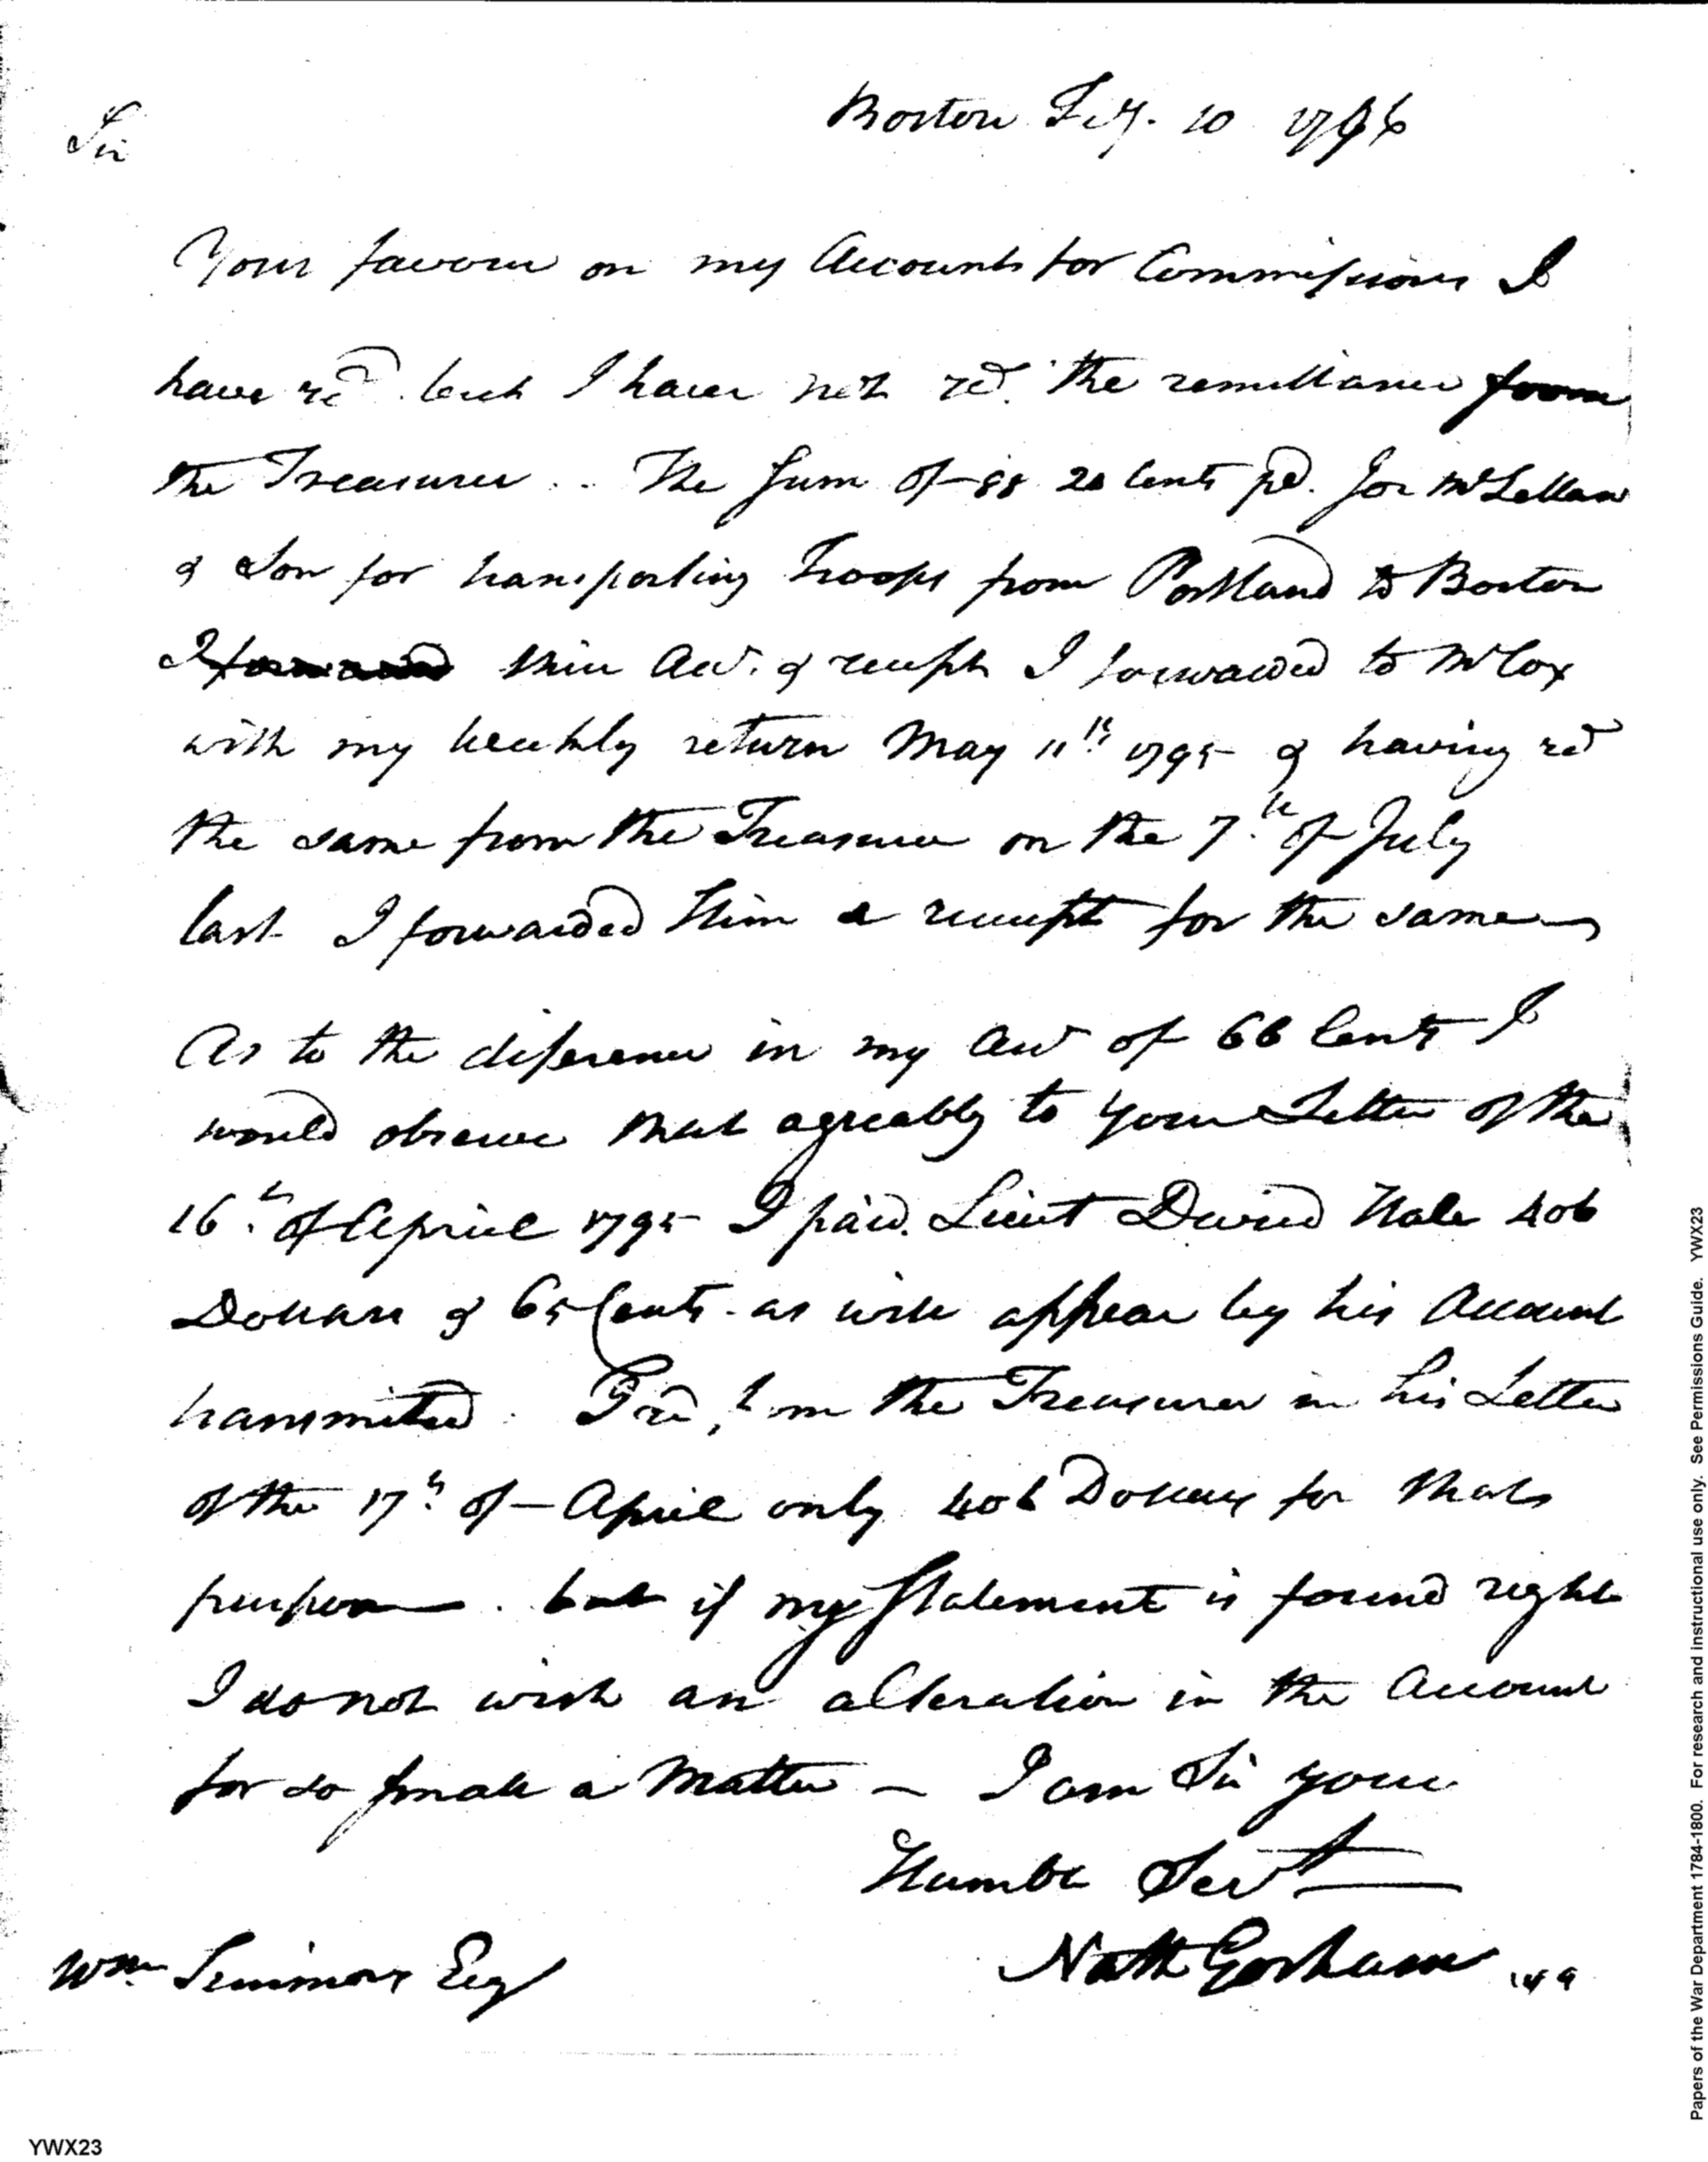 Boston Feby. 10 1796
Sir
Your favour on my Accounts for Commissions I
have recd. but I have not recd. the remittance from
the Treasurer .. The Sum of 88 20 Cents pd. Jos McLellan
& Son for transporting Troops from Portland to Boston
I their Acct. & receipt I forwarded to Mr Cox
with my Weekly return May 11th 1795 & having recd
the same from the Treasurer on the 7th of July
last I forwarded Him a receipt for the same
As to the diference in my Acct of 66 Cents I
would observe that agreably to your Letter of the
16th of Apriel 1795 I paid. Lieut David Hale 406
Dollars & 65 Cents - as will appear by his Account
transmitted. I recd, from the Treasurer in his Letter
of the 17th of April only 406 Dollars for that
purpose. but if my Statement is found right
I do not wish an alteration in the Account
for so small a Matter - I am Sir your
Humbe Servt
Nath Gorham
Wm Simmons Esqr
YWX23
Papers of the War Department 1784-1800. For research and instructional use only. See Permissions Guide. YWX23